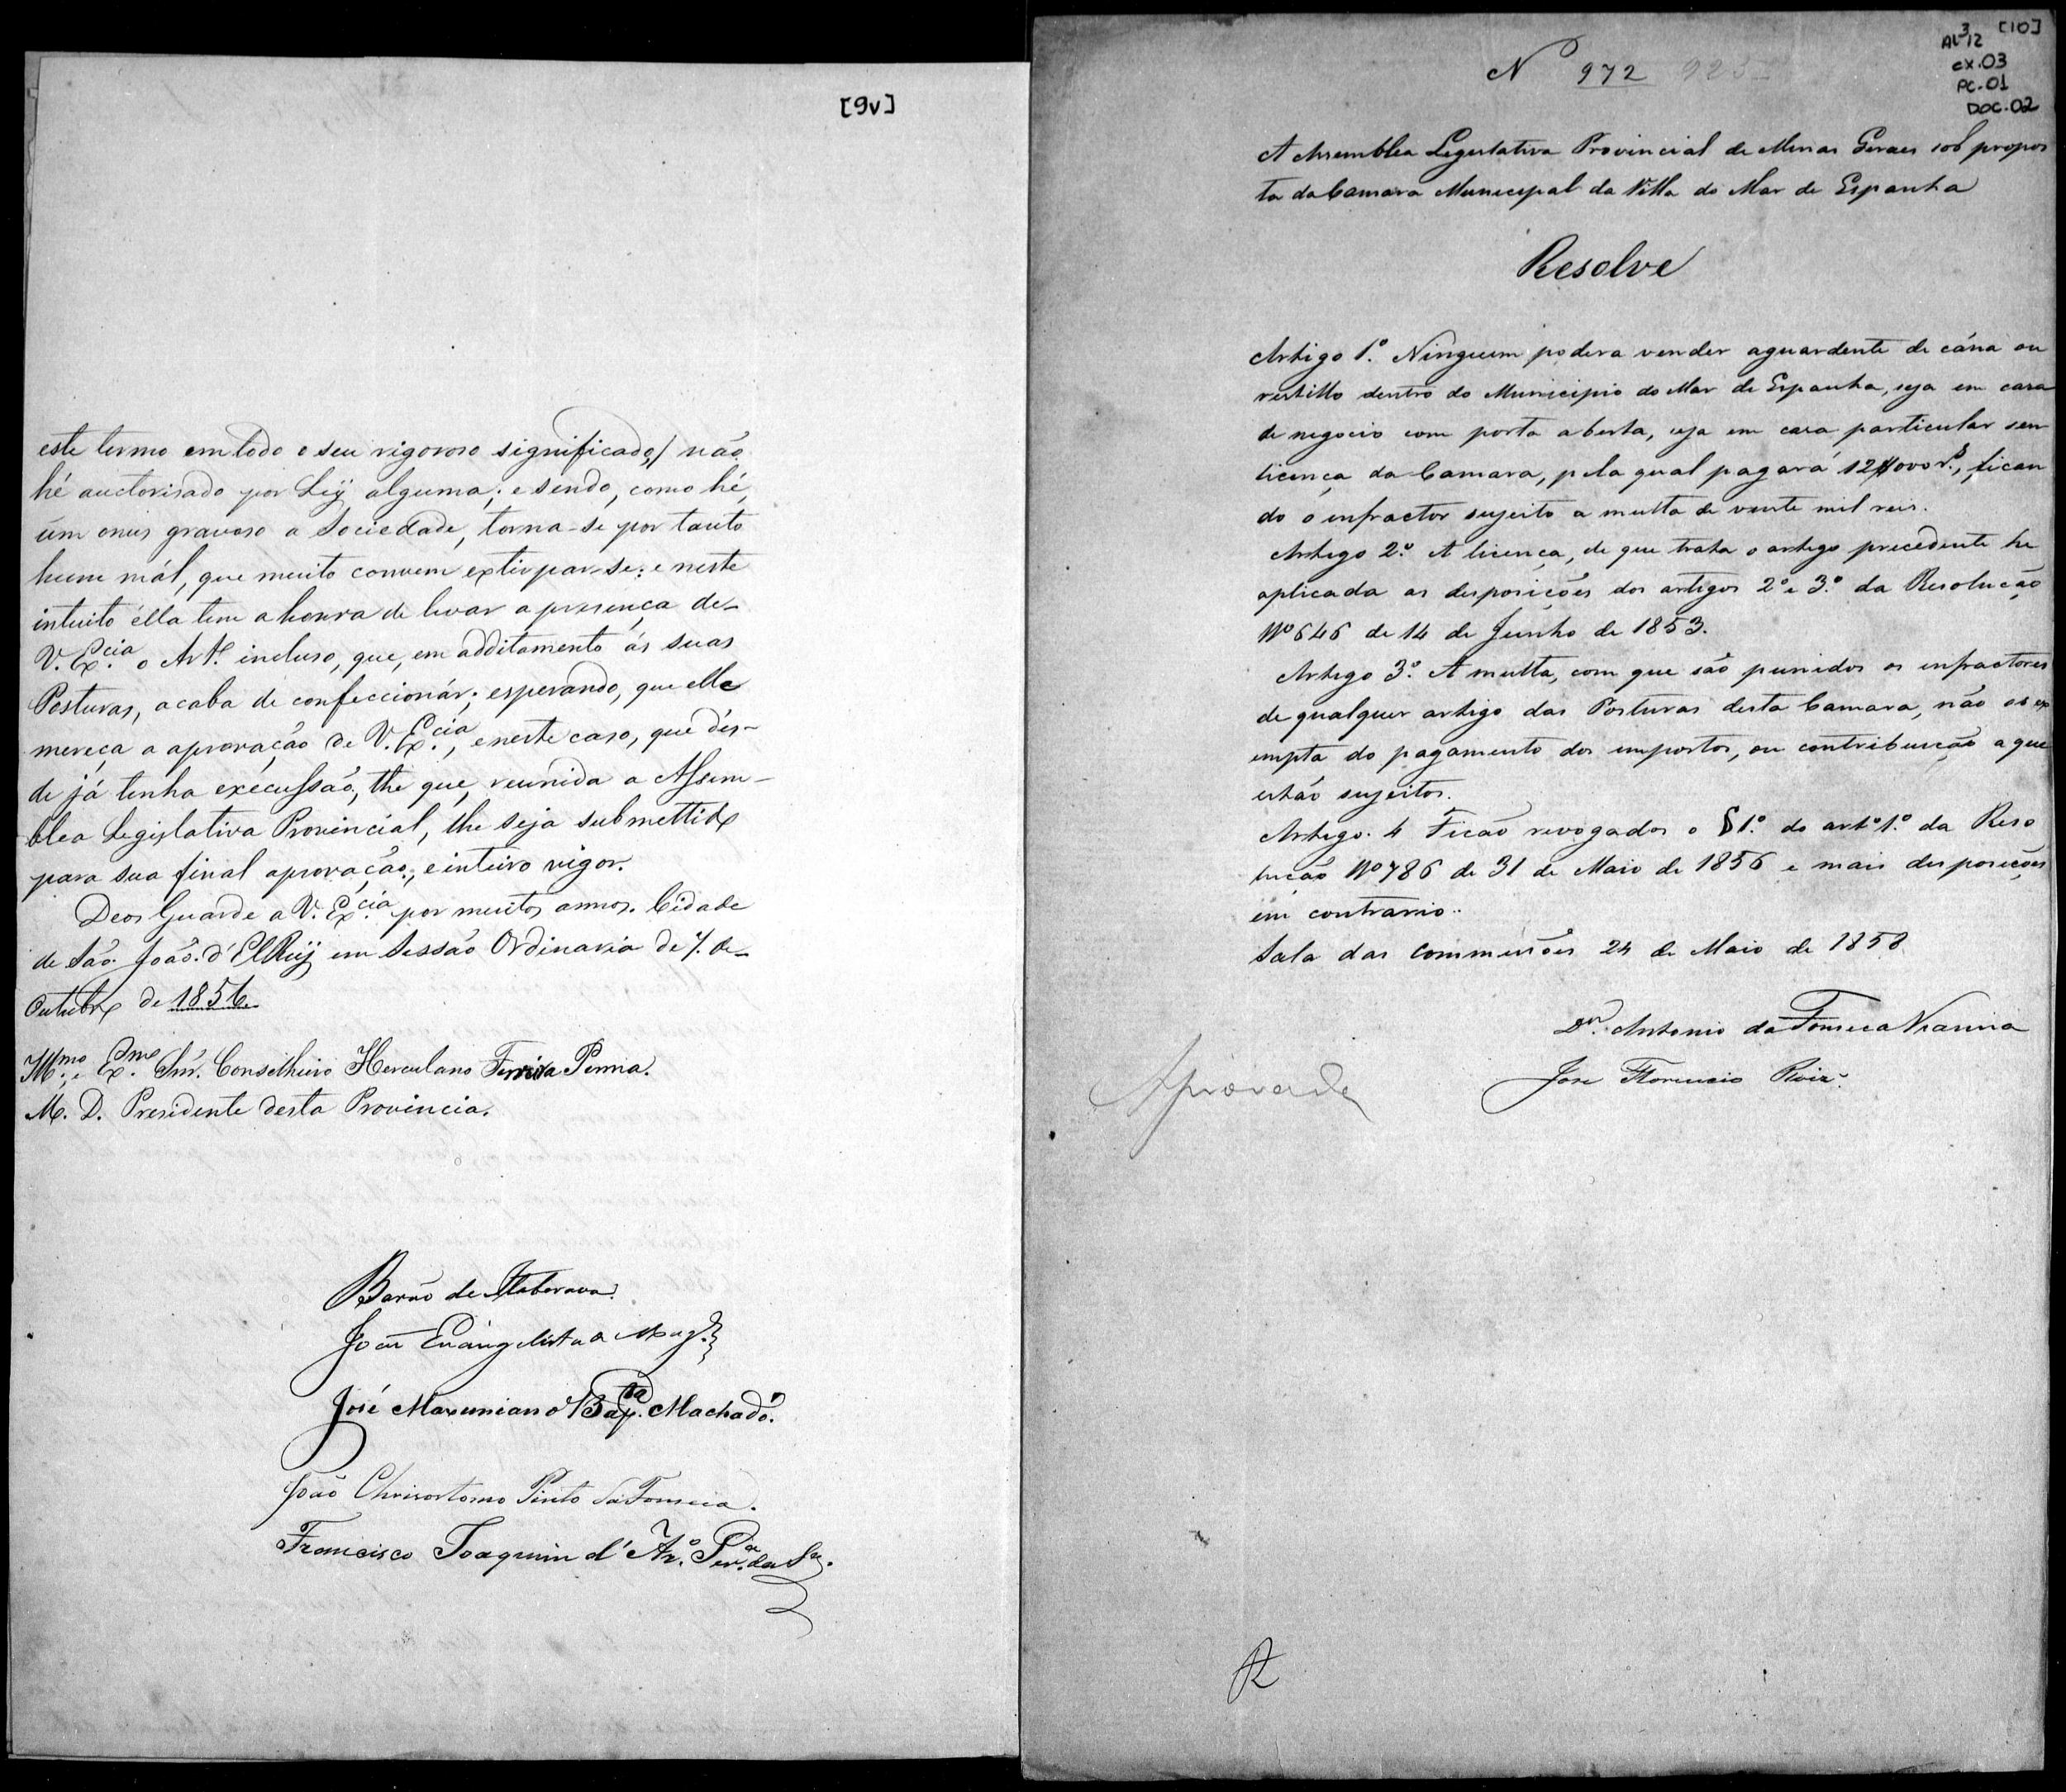 [9v]
este termo em todo o seu rigoroso significado,/ não
hé auctorisado por Leÿ alguma; e sendo, como hé,
úm onus gravoso a Sociedade, torna-se por tanto
hum mál, que muito convem extirpar-se: e neste
intuito élla tem a honra de levar a presença de
V. Ex.cia o Art.º incluso, que, em additamento ás suas
Posturas, acaba de confeccionár; esperando, que elle
mereça a aprovação de V. Ex.cia, e neste caso, que dés-
de já tenha execussão, the que, reunida a Assem-
blea Legislativa Provincial, lhe seja submettido
para sua final aprovação, e inteiro vigor.
Deos Guarde a V. Ex.cia por muitos annos. Cidade
de São João d'ElReÿ em Sessão Ordinaria de 7. de
Outubro de 1856.
Ill.mo e Ex.mo Snr. Conselheiro Herculano Ferreira Penna.
M. D. Presidente desta Provincia.
Barão de Itaberava.
João Evangelista de Mag.es
José Maximiano Bap.ta Machado.
João Chrisostomo Pinto da Fonseca.
Francisco Joaquim d'Ar.º Per.a da S.a
[10]
AL 3/12
cx.03
PC.01
DOC.02
N 972 925
A Assemblea Legislativa Provincial de Minas Geraes sob propos
ta da Camara Municipal da Villa do Mar de Espanha
Resolve
Artigo 1.º Ninguem podera vender aguardente de cána ou
restillo dentro do Municipio do Mar de Espanha, seja em casa
de negocio com porta aberta, seja em casa particular sem
licença da Camara, pela qual pagará 12$000 r.s, fican
do o infractor sujeito a multa de vinte mil reis.
Artigo 2.º A licença, de que trata o artigo precedente he
aplicada as disposições dos artigos 2º e 3.º da Resolução
Nº 646 de 14 de Junho de 1853.
Artigo 3.º A multa, com que são punidos os infractores
de qualquer artigo das Posturas desta Camara, não os ex
empta do pagamento dos impostos, ou contribuição a que
estão sujeitos.
Artigo. 4 Ficão revogados o §1.º do artº 1.º da Reso
lução Nº 786 de 31 de Maio de 1856 e mais disposições
em contrario.
Sala das Commissões 24 de Maio de 1858
Dr. Antonio da Fonseca Vianna
Jose Florencio Roiz
Aprovado